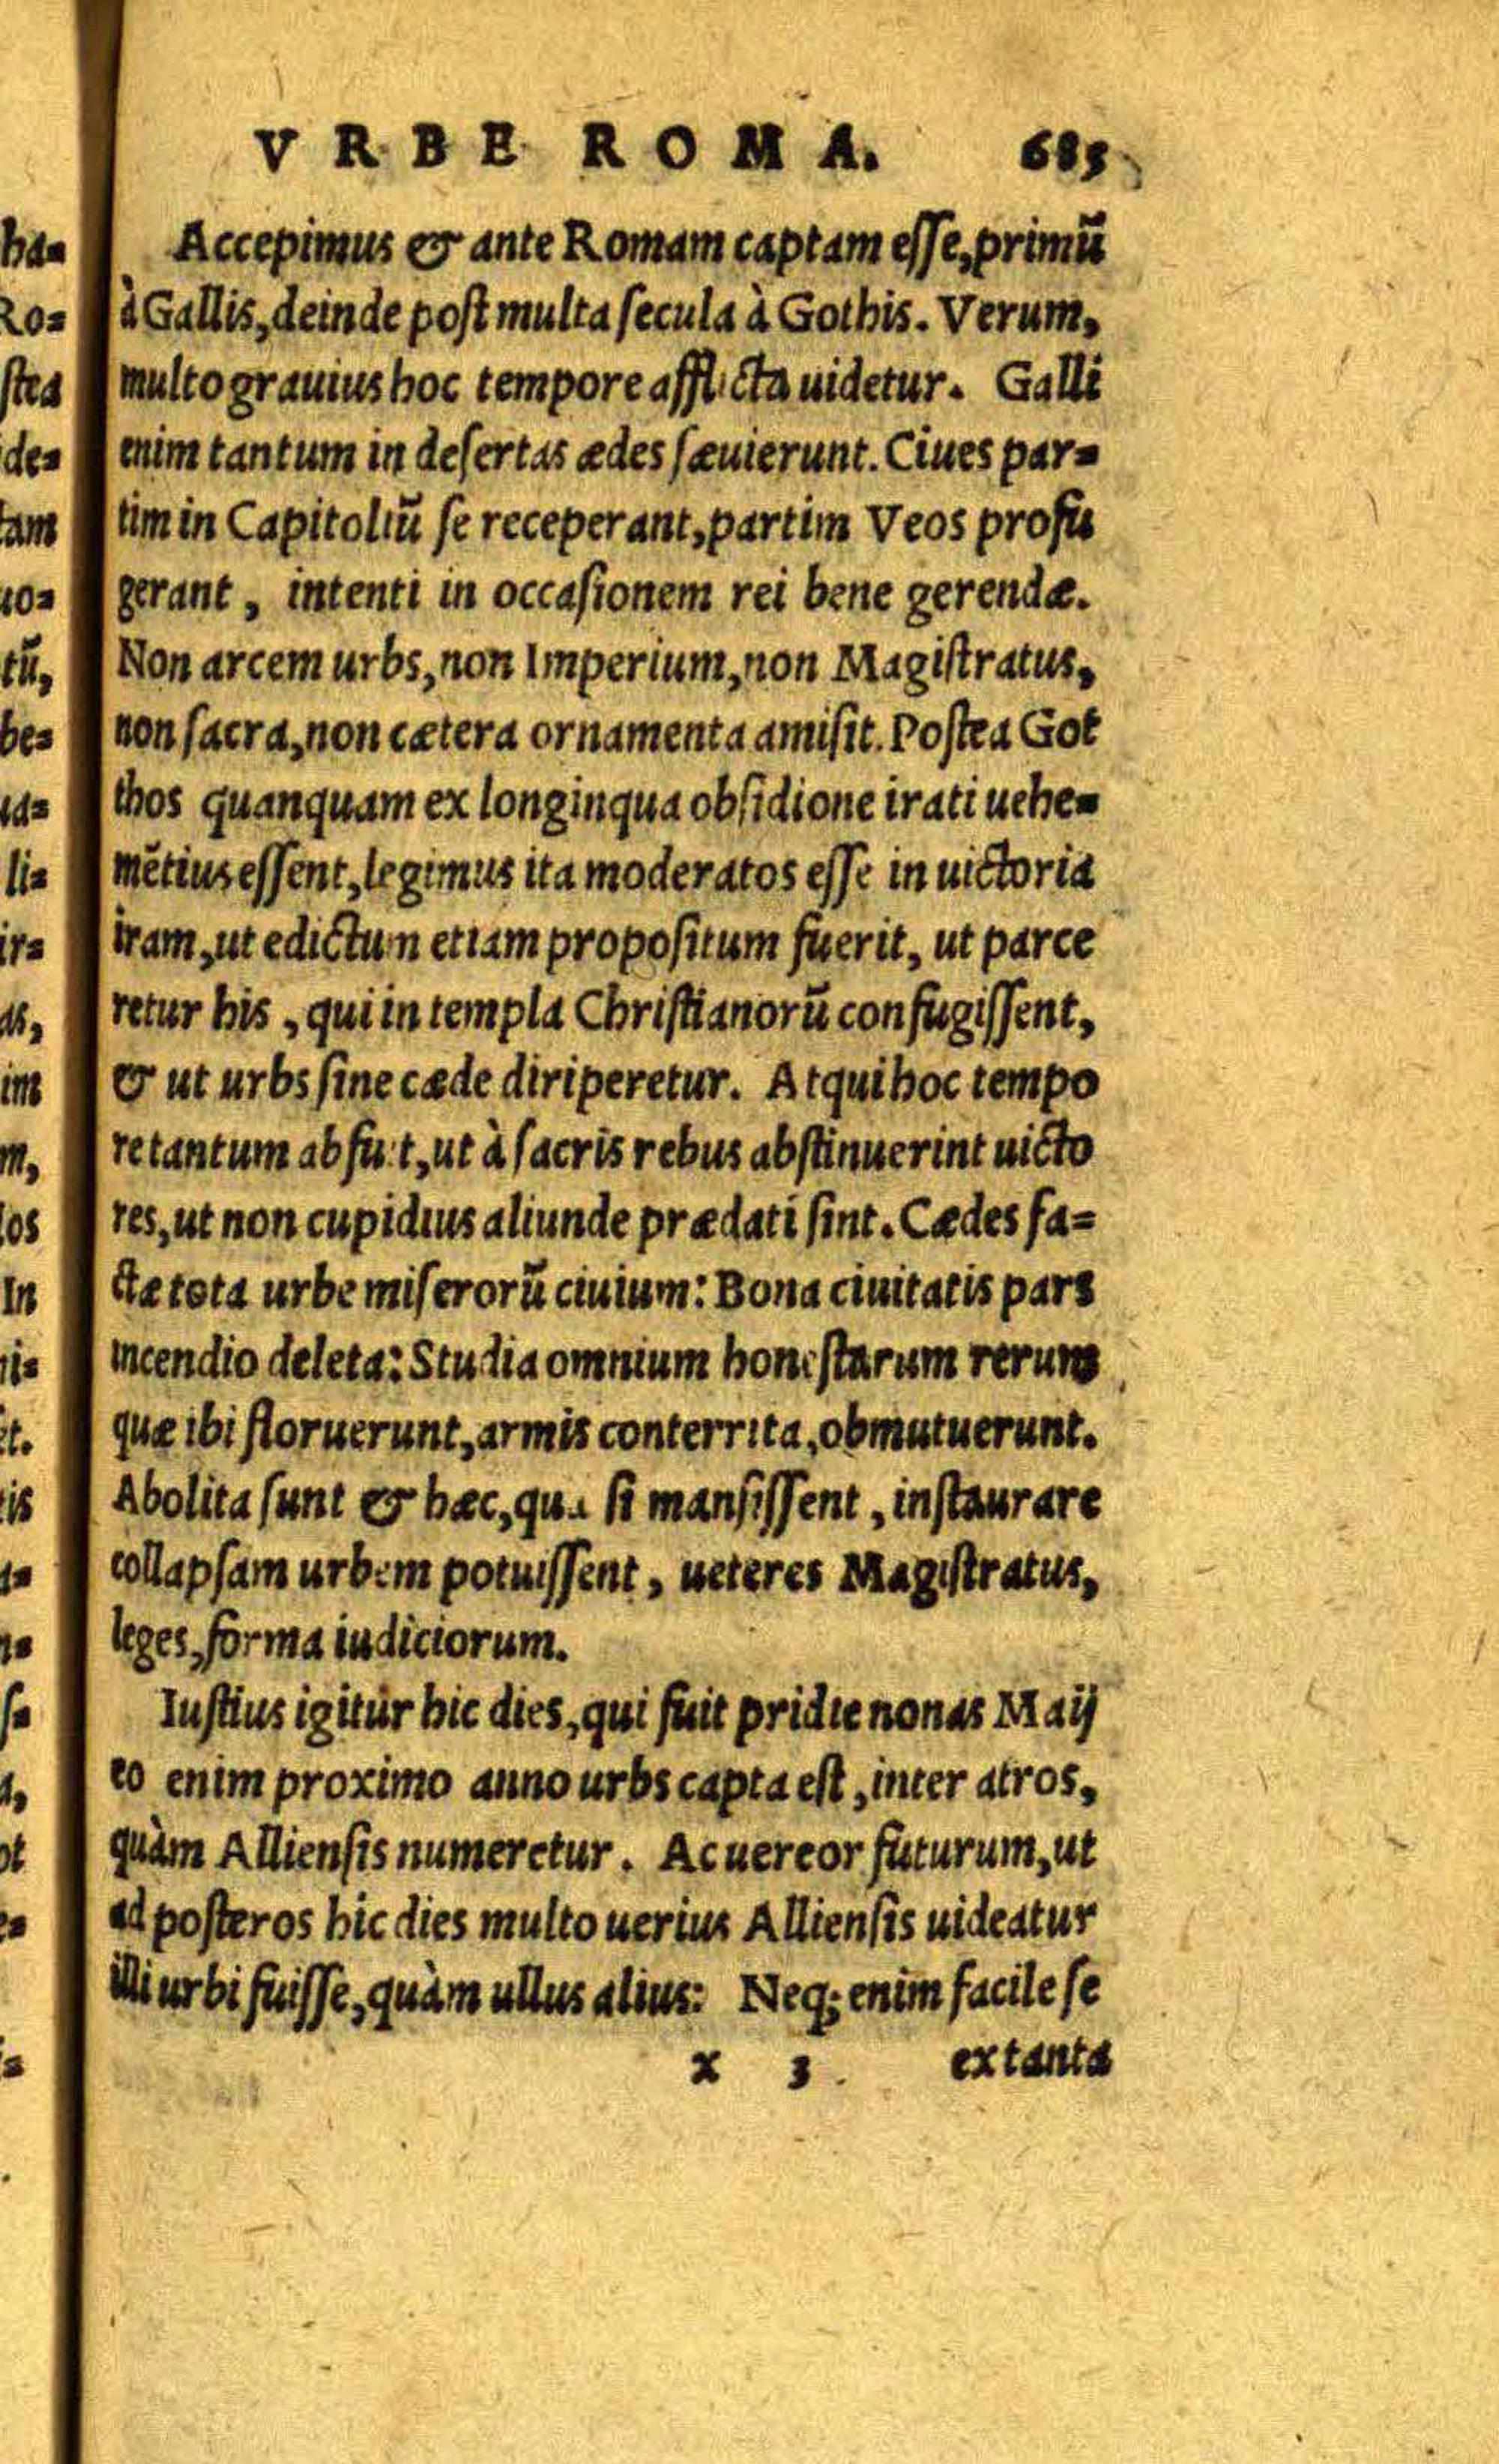 VRBE ROMA. 685
Accepimus & ante Romam captam esse, primũ
à Gallis, deinde post multa secula à Gothis. Verum,
multo grauius hoc tempore afflicta uidetur. Galli
enim tantum in desertas ædes sæuierunt. Ciues par=
tim in Capitoliũ se receperant, partim Veos profu
gerant, intenti in occasionem rei bene gerendæ.
Non arcem urbs, non Imperium, non Magistratus,
non sacra, non cætera ornamenta amisit. Postea Got
thos quanquam ex longinqua obsidione irati uehe=
mẽtius essent, legimus ita moderatos esse in uictoria
iram, ut edictum etiam propositum fuerit, ut parce
retur his, qui in templa Christianorũ confugissent,
& ut urbs sine cæde diriperetur. Atqui hoc tempo
re tantum abfuit, ut à sacris rebus abstinuerint uicto
res, ut non cupidius aliunde prædati sint. Cædes fa=
ctæ tota urbe miserorũ ciuium: Bona ciuitatis pars
incendio deleta: Studia omnium honestarum rerum
quæ ibi floruerunt, armis conterrita, obmutuerunt.
Abolita sunt & hæc, quæ si mansissent, instaurare
collapsam urbem potuissent, ueteres Magistratus,
leges, forma iudiciorum.
Iustius igitur hic dies, qui fuit pridie nonas Maij
eo enim proximo anno urbs capta est, inter atros,
quàm Alliensis numeretur. Ac uereor futurum, ut
ad posteros hic dies multo uerius Alliensis uideatur
illi urbi fuisse, quàm ullus alius: Neq; enim facile se
x 3 ex tanta